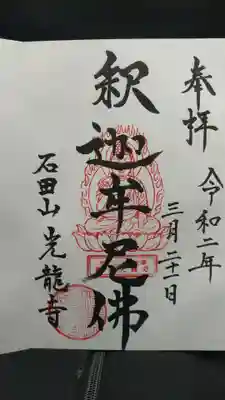 奉拝
令和二年
三月二十一日
釈迦牟尼佛
石田山 光龍寺